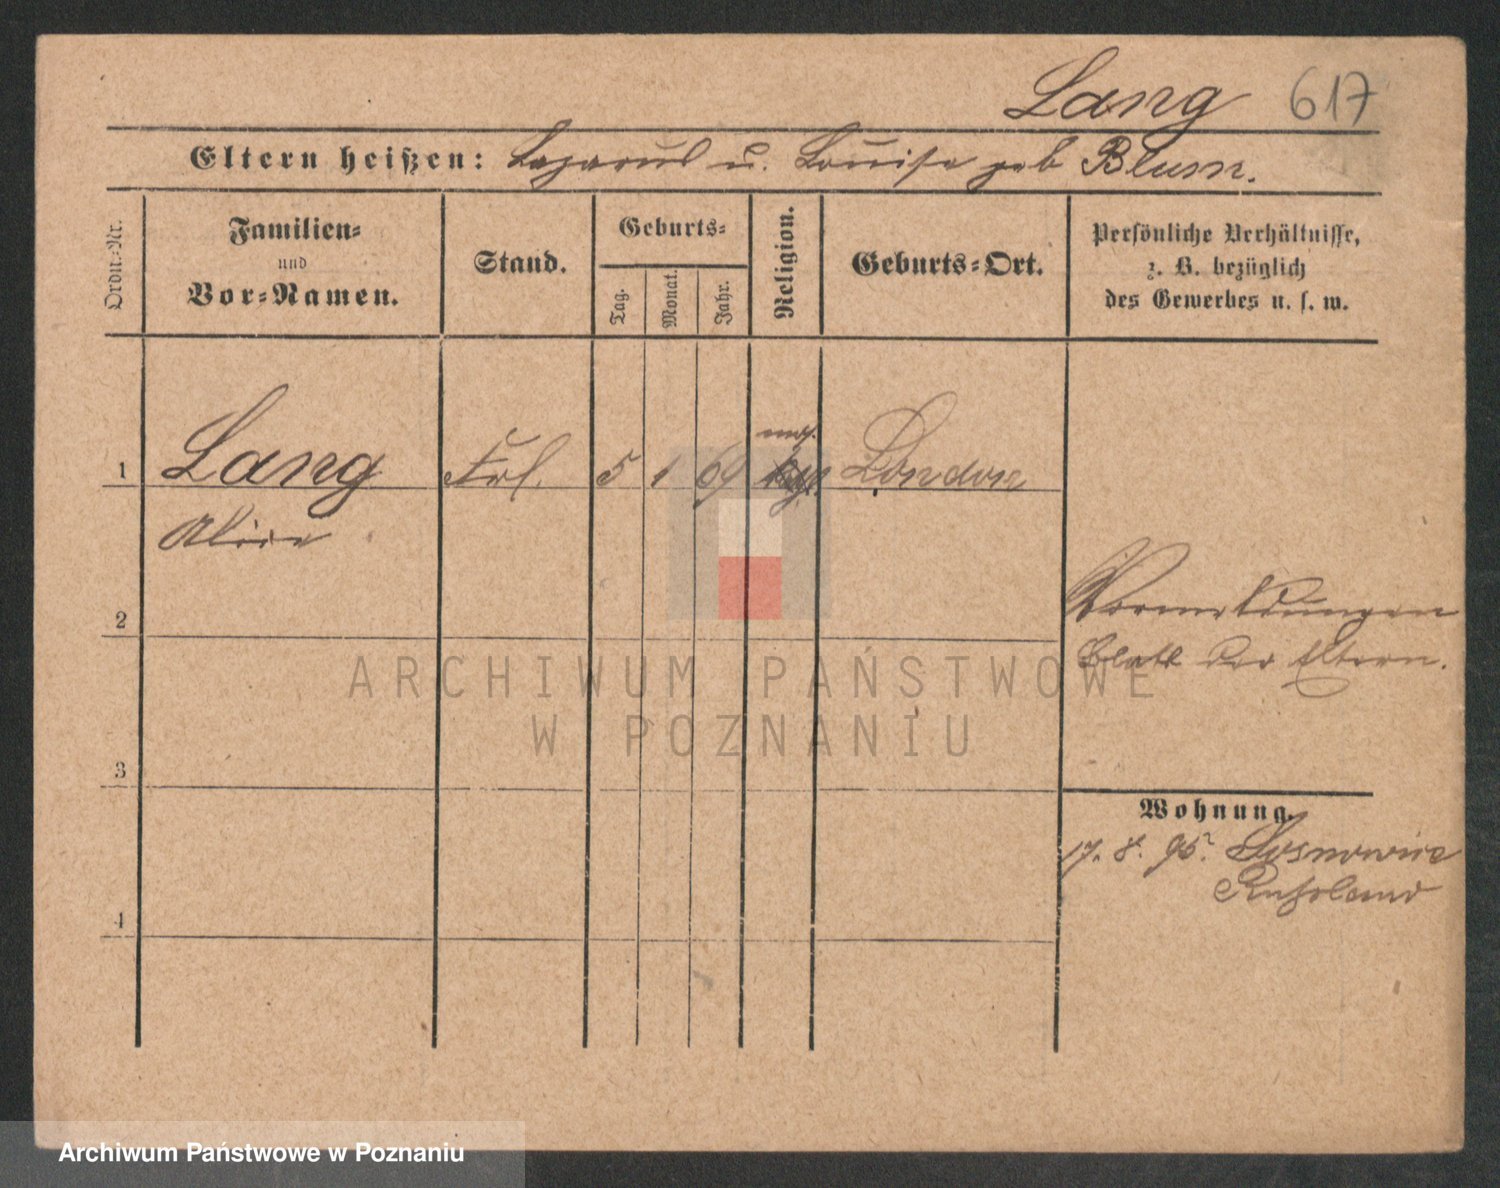 Lang 617
Eltern heißen: Lazarus u. Louise geb Blum.
Ordn.-Nr.
Familien-
und
Vor-Namen.
Stand.
Geburts-
Tag.
Monat.
Jahr.
Religion.
Geburts-Ort.
Persönliche Verhältnisse,
z. B. bezüglich
des Gewerbes u. s. w.
mos.
1 Lang Frl. 5 1 69 London
Alice
Vormeldungen
2
Blatt der Eltern.
ARCHIWUM PAŃSTWOWE
W POZNANIU
3
Wohnung.
17. 8. 95. Sosnowice
Rußland
4
Archiwum Państwowe w Poznaniu